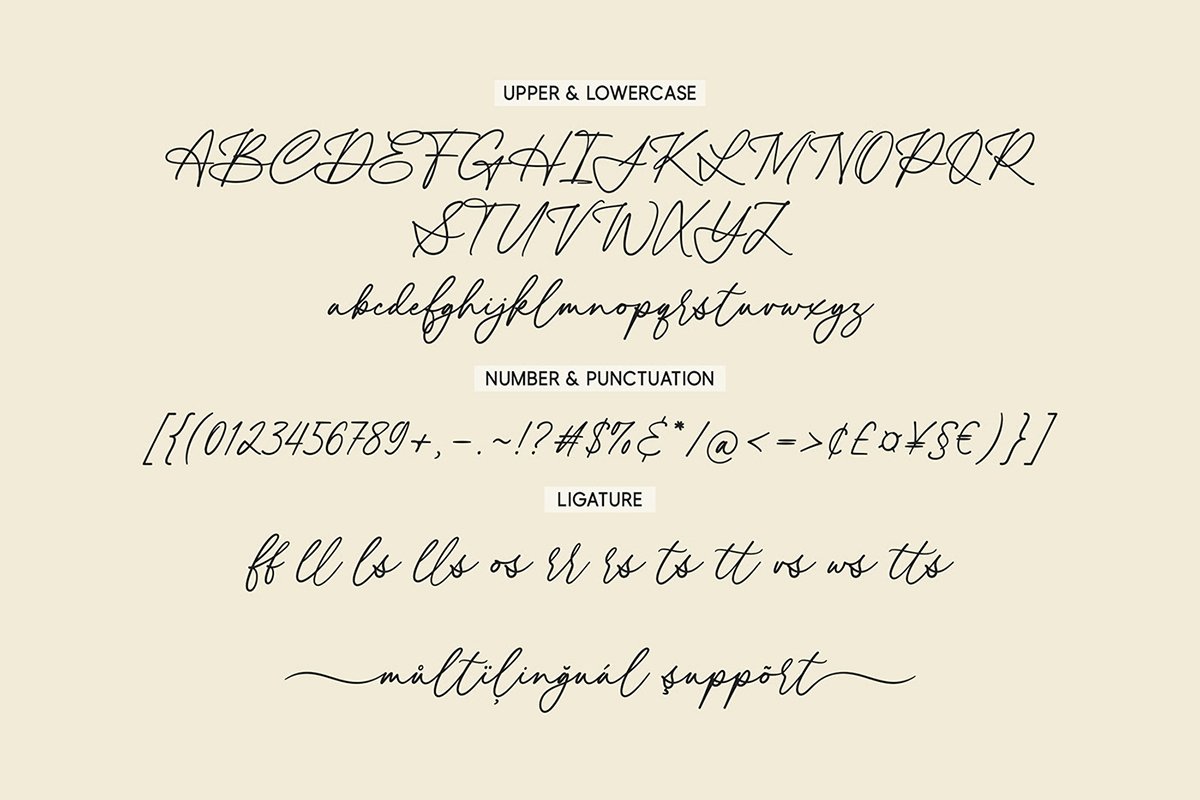 UPPER & LOWERCASE
ABCDEFGHIJKLMNOPQR
STUVWXYZ
abcdefghijklmnopqrstuvwxyz
NUMBER & PUNCTUATION
[{(0123456789+,-.~!?#$%&*/@<=>¢£¤¥§€)}]
LIGATURE
ff ll ls lls os rr rs ts tt vs ws tts
můltïļinğuál şuppõrt